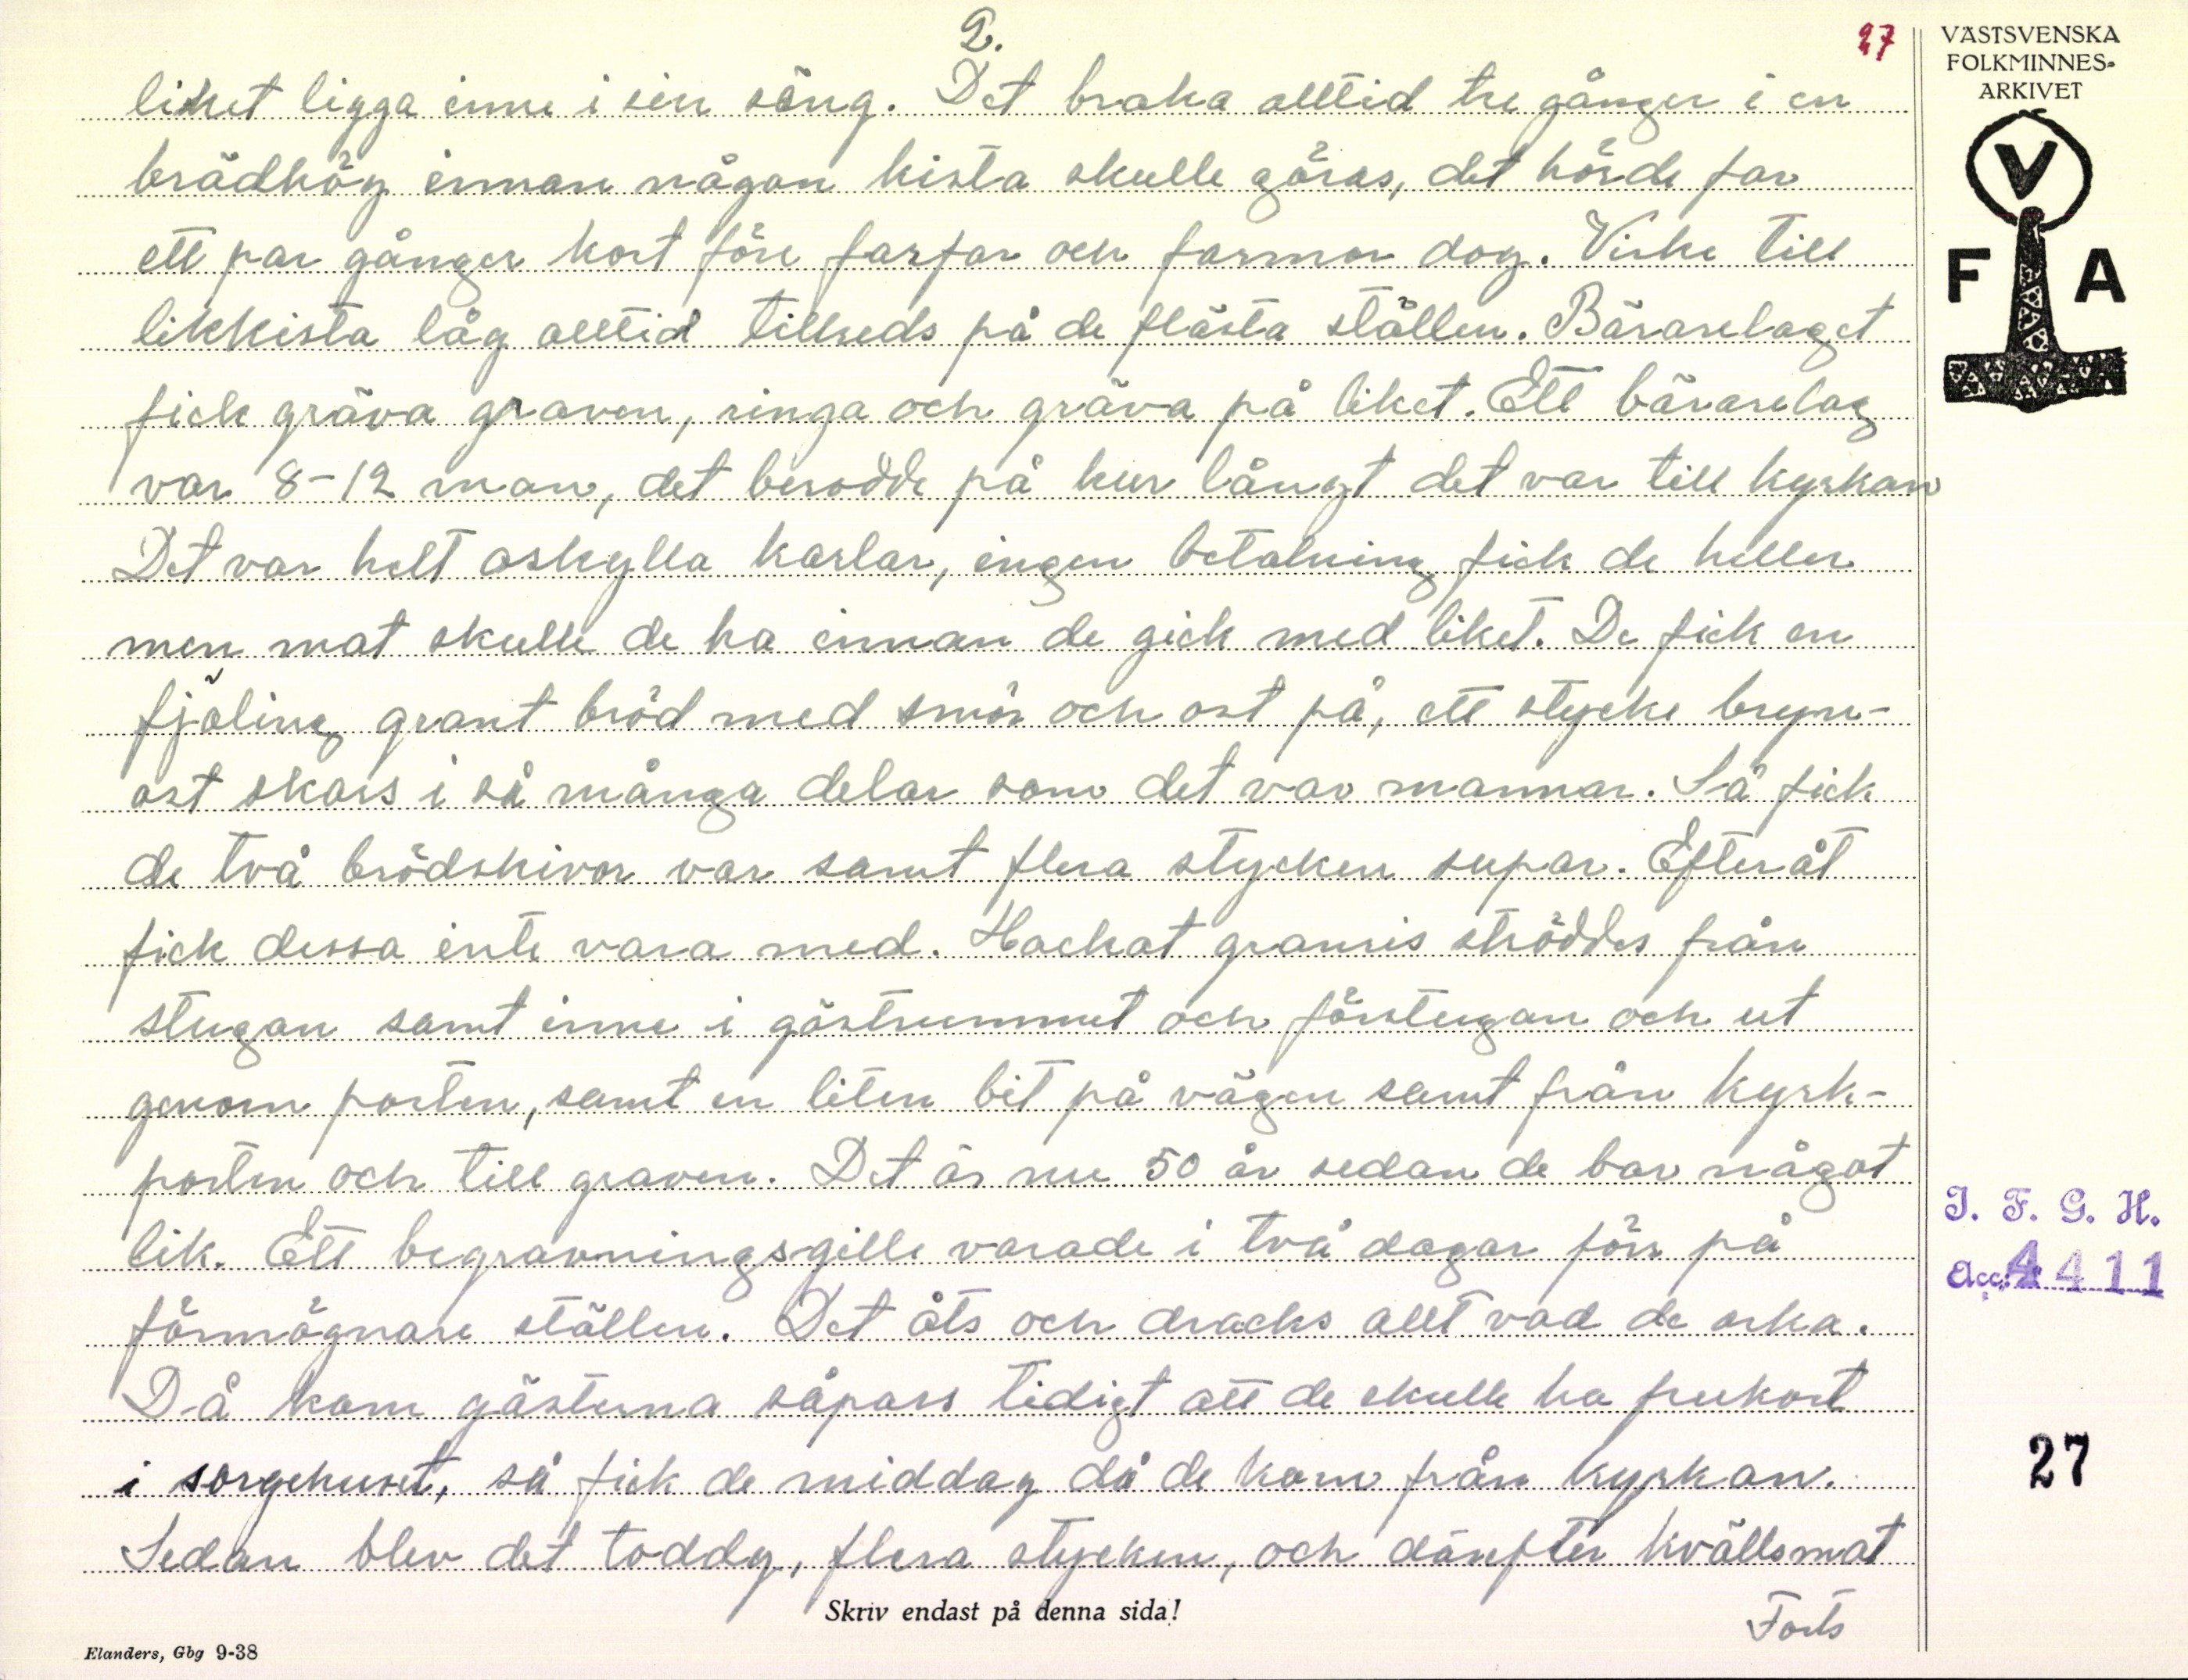 2.
27
VÄSTSVENSKA
FOLKMINNES-
ARKIVET
V
F A
liket ligga inne i sin säng. Det braka alltid tre gånger i en
brädhög innan någon kista skulle göras, det hörde far
ett par gånger kort före farfar och farmor dog. Virke till
likkista låg alltid tillreds på de flästa ställen. Bärarelaget
fick gräva graven, ringa och gräva på liket. Ett bärarelag
var 8-12 man, det berodde på hur långt det var till kyrkan
Det var helt oskylla karlar, ingen betalning fick de heller
men mat skulle de ha innan de gick med liket. De fick en
fjäling grant bröd med smör och ost på, ett stycke bryn-
ost skars i så många delar som det var mannar. Så fick
de två brödskivor var samt flera stycken supar. Efteråt
fick dessa inte vara med. Hackat granris ströddes från
stugan samt inne i gästrummet och förstugan och ut
genom porten, samt en liten bit på vägen samt från kyrk-
porten och till graven. Det är nu 50 år sedan de bar något
lik. Ett begravningsgille varade i två dagar förr på
förmögnare ställen. Det åts och dracks allt vad de orka.
Då kom gästerna såpass tidigt att de skulle ha frukost
i sorgehuset, så fick de middag då de kom från kyrkan.
Sedan blev det toddy, flera stycken, och därefter kvällsmat
Forts
I. F. G. H.
Acc. 4411
27
Skriv endast på denna sida!
Elanders, Gbg 9-38